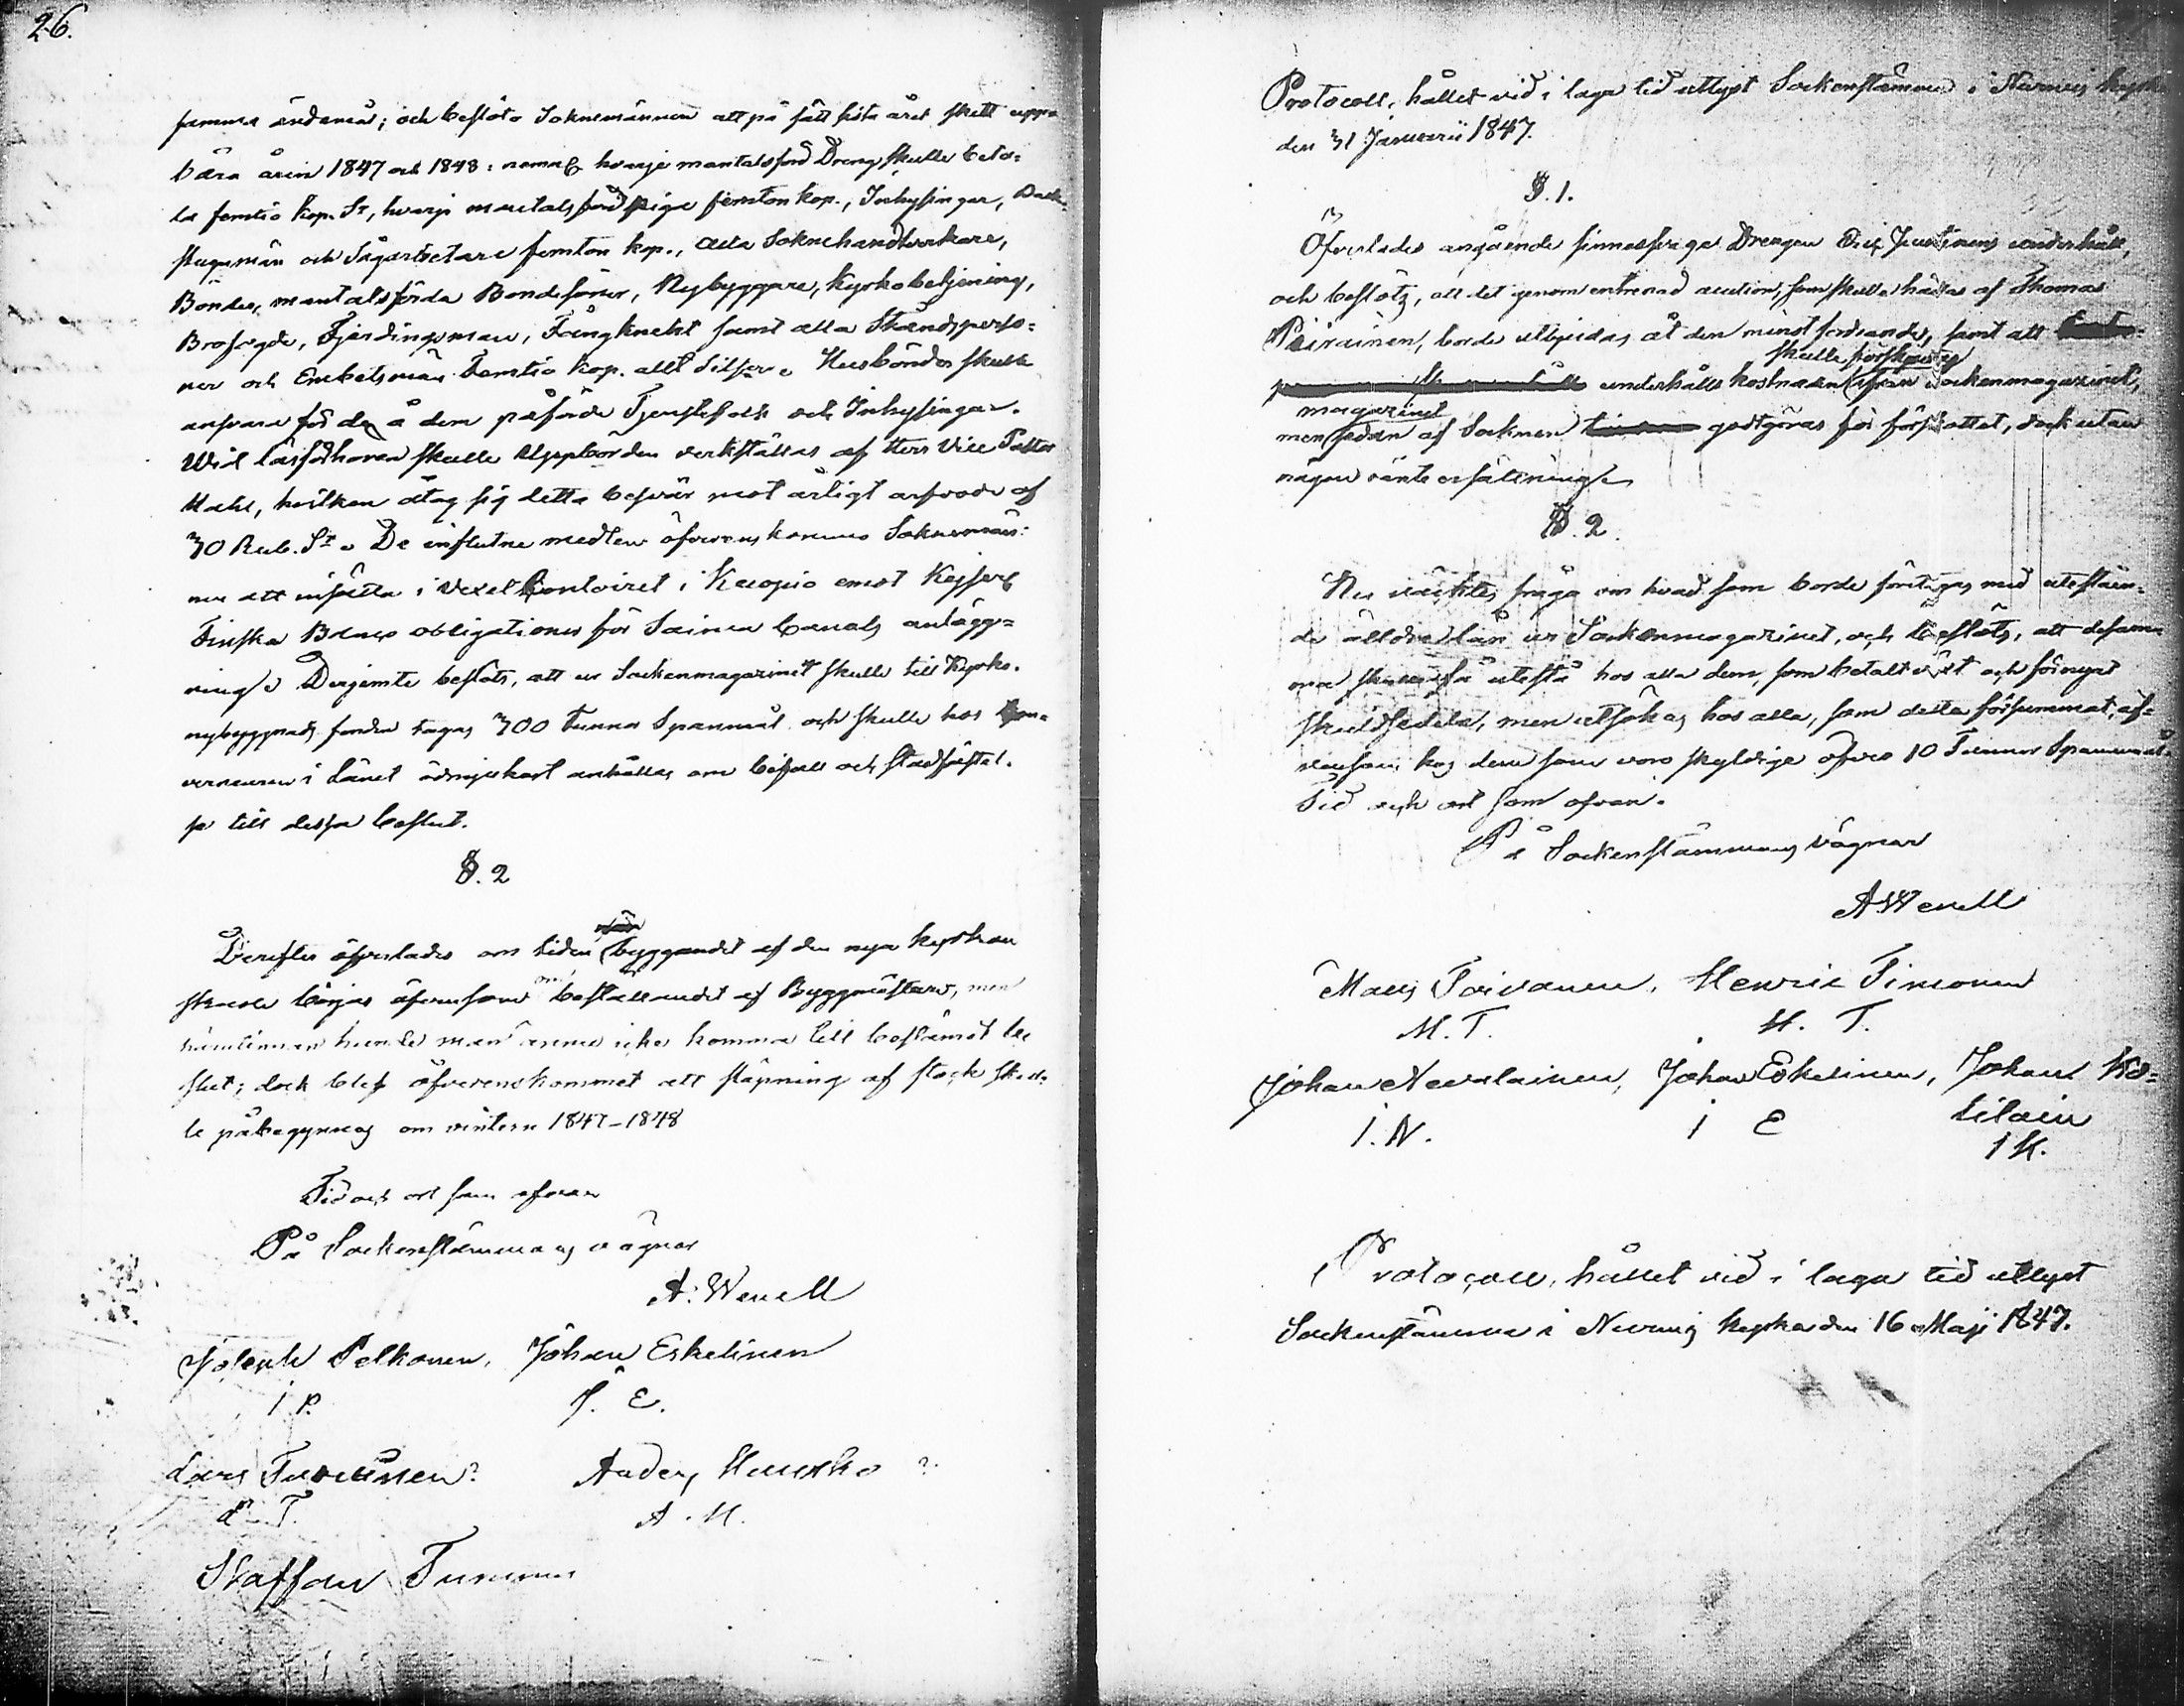 26.
samma ändamål; och beslöto Soknemännen att på sätt sista året skett uppe-
bära åren 1847 och 1848: neml. hvarje mantalsförd Dreng skulle beta=
la femtio kop. Sr, hvarje mantalsförd piga femton kop., Inhysingar, Back-
stugumän och Sågarbetare femton kop., alla Soknehandtverkare,
Bönder, mantalsförda Bondesöner, Nybyggare, Kyrkobetjening,
Brofogde, Fjerdingsman, Fångknekt samt alla Ståndsperso=
ner och Embetsmän femtio kop. allt Silfver. Husbönder skulle
ansvara för de å dem påförde Tjenstefolk och Inhysingar.
Wid läsförhören skulle Uppbörden verkställas af Herr Vice Pastor
, hvilken åtog sig detta besvär mot årligt arfvode af
30 Rub. Sr. De influtne medlen öfverenskommo Soknemän:
nen att insätta i Vexel Contoiret i Kuopio emot Kejserl.
Finska Banco obligationer för Saima Canals anlägg=
ning. Derjemte beslöts, att ur Sockenmagazinet skulle till Kyrko-
nybyggnads fonden tagas 300 Tunnor Spanmål och skulle hos Gou-
verneuren i Länet ödmjukast anhållas om bifall och stadfästel-
se till dessa beslut.
§. 2
Derefter öfverlades om tiden när byggandet af den nya kyrkan
skulle börjas äfvensom om beställandet af Byggmästare, men
härutinnan kunde man ännu icke komma till bestämdt be
slut; dock blef öfverenskommet att släpning af stock skul-
le påbegynnas om vintern 1847-1848
Tid och ort som ofvan
På Sockenstämmans vägnar
A. Wenell
Joseph Pelkonen, Johan Eskelinen
I. P. J. E.
Lars Turuinen? Anders ?
L. T. A. H.
Staffan Turunen
Protocoll, hållet vid i laga tid utlyst Sockenstämma i Nurmis kyrka
den 31 Januarii 1847.
§. 1.
Öfverlades angående sinnessvage Drengen Eric underhåll,
och beslöts, att det genom entreprenad auction, som skulle hållas af Thomas
Piirainen, borde utbjudas åt den minst fordrande, samt att
skulle förskjutas
underhålls kostnaden från Sockenmagazinet,
magazinet
men sedan af Socknen godtgöras för förskottet, dock utan
någon ränte ersättning.
§. 2.
Nu väcktes fråga om hvad som borde företagas med utestån-
de äldre lån ur Sockenmagazinet, och beslöts, att desamma
skulle få utestå hos alla dem, som betalt växt och förnyat
skuldsedeln, men utsökas hos alla, som detta försummat, äf=
vensom hos dem som voro skyldige öfver 10 Tunnor Spannmål.
Tid och ort som ofvan.
På Sockenstämmans vägnar
A. Wenell
Mats Toivanen, Henric Timonen
M. T. H. T.
Johan Nevalainen, Johan Eskelinen, Johan Kor=
I. N. I E tilain
I K.
Protocoll, hållet vid i laga tid utlyst
Sockenstämma i Nurmis kyrka den 16 Maji 1847.